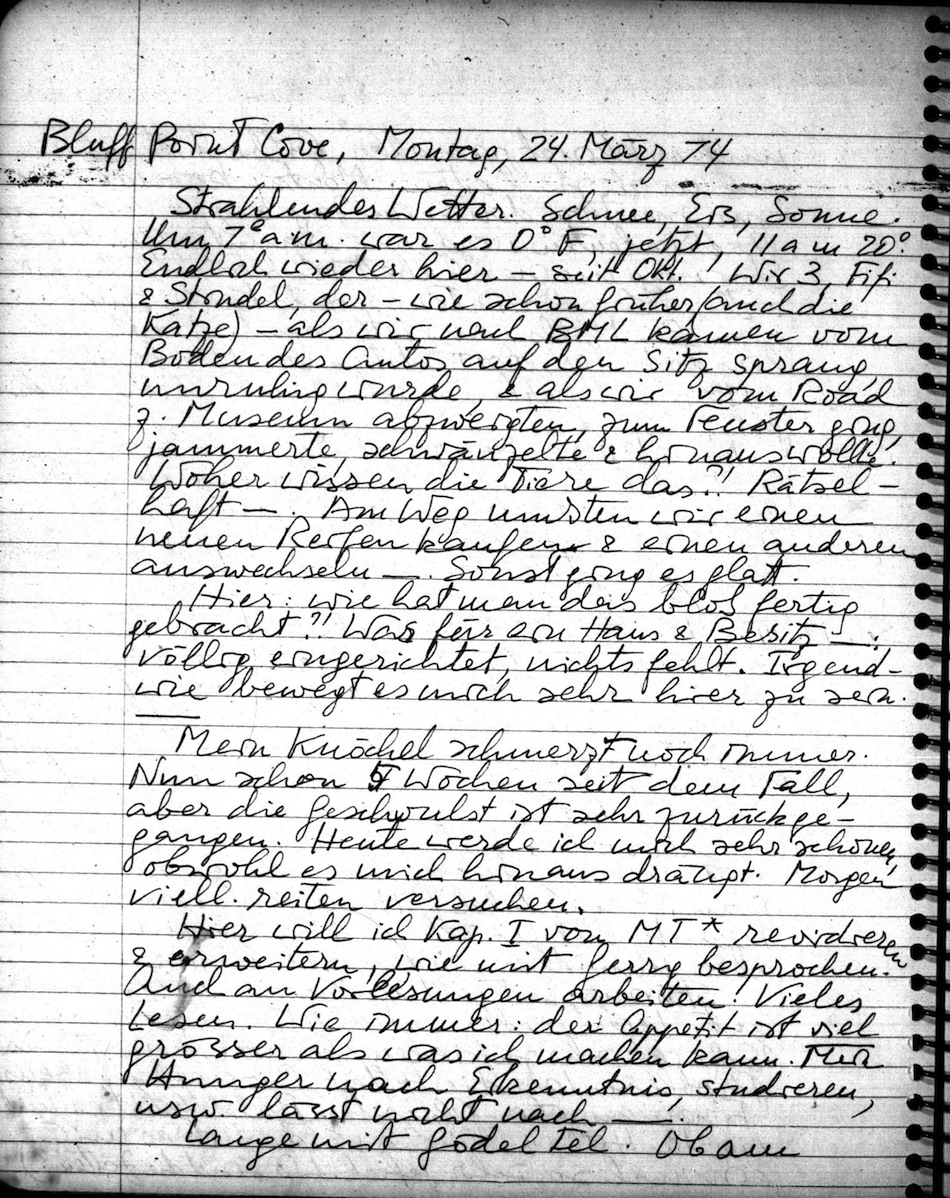 Bluff Point Cove, Montag, 24. März 74
Strahlendes Wetter. Schnee, Eis, Sonne.
Um 7 a.m. war es 0° F, jetzt, 11 a m 20°.
Endlich wieder hier – seit Okt. Wir 3, Fifi
& Strudel, der – wie schon früher (auch die
Katze) – als wir nach BML kamen vom
Boden des Autos auf den Sitz sprang,
unruhig wurde, & als wir vom Road
z. Museum abzweigten, zum Fenster ging,
jammerte, schwänzelte & hinauswollte.
Woher wissen die Tiere das?! Rätsel-
haft —. Am Weg mußten wir einen
neuen Reifen kaufen & einen anderen
auswechseln —. Sonst ging es glatt.
Hier: wie hat man das bloß fertig
gebracht?! Was für ein Haus & Besitz —:
völlig eingerichtet, nichts fehlt. Irgend-
wie bewegt es mich sehr hier zu sein.
Mein Knöchel schmerzt noch immer.
Nun schon 5 Wochen seit dem Fall,
aber die Geschwulst ist sehr zurückge-
gangen. Heute werde ich mich sehr schonen,
obwohl es mich hinaus drängt. Morgen
viell. reiten versuchen.
Hier will ich Kap. I vom MT* revidieren
& erweitern, wie mit Jerry besprochen.
Auch an Vorlesungen arbeiten. Vieles
Lesen. Wie immer: der Appetit ist viel
grösser als was ich machen kann. Mein
Hunger nach Erkenntnis, studieren,
usw. lässt nicht nach —.
Lange mit Gödel tel.